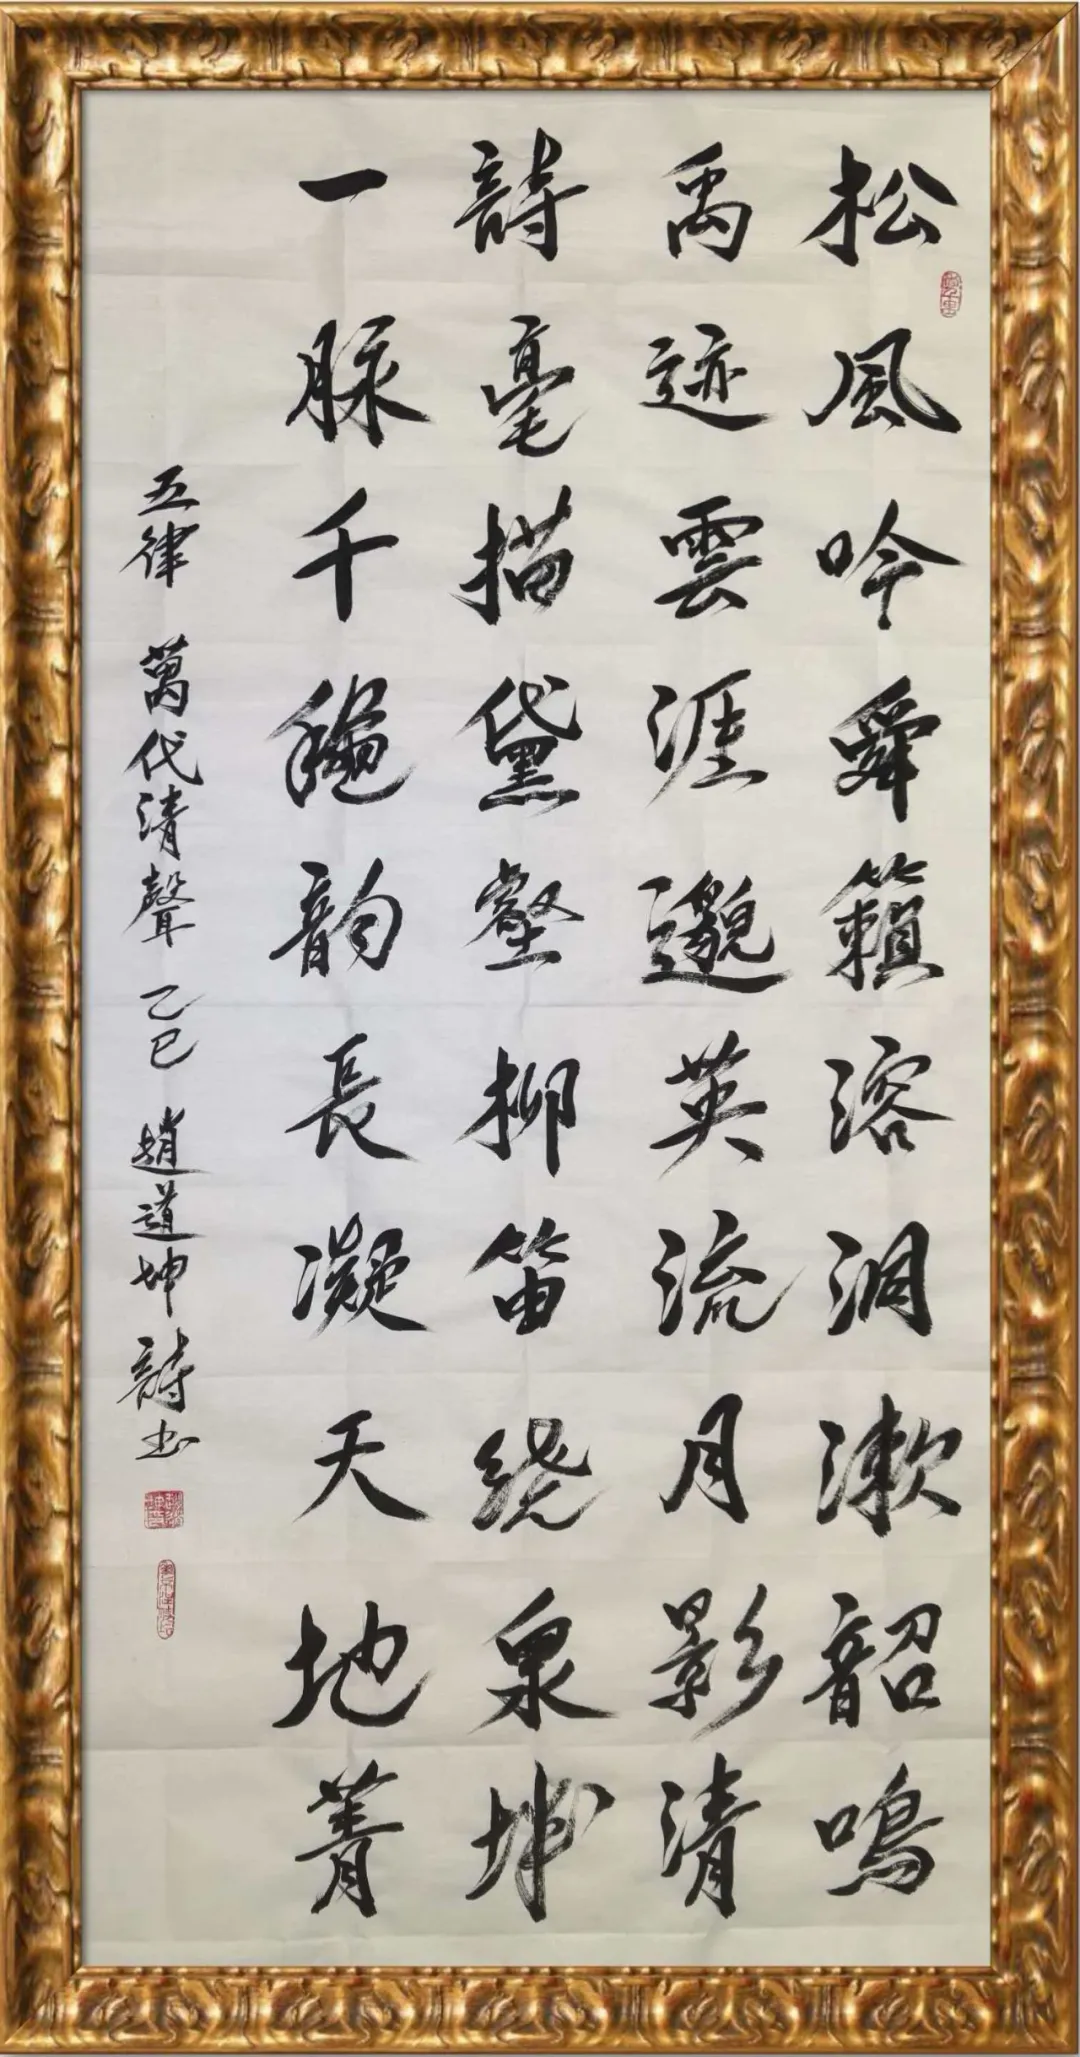 松風吟舜籟溶洞漱韶鳴
禹迹雲涯邈英流月影清
詩毫描黛壑柳笛绕泉城
一脉千穐韵長凝天地菁
五律 萬代清聲 乙巳 趙道坤詩书